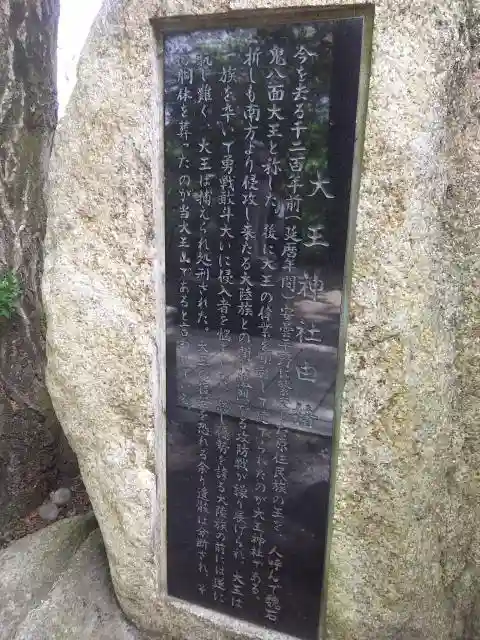 大王神社由緒
今を去る千二百年前(延暦年間)安曇平野に 原住民族の王を、人呼んで魏石
鬼八面大王と称した。後に大王の偉業を して てられたのが大王神社である。
折しも南方より侵攻し来たる大陸族との間に る攻防戦が繰り展げられ、大王は
一族を率いて勇戦敢斗大いに侵入者を悩 優勢を誇る大陸族の前には遂に
抗し難く、大王は捕えられ処刑された。大王の を恐れる余り遺骸は分断され、そ
の胴体を葬ったのが当大王山であると言 て